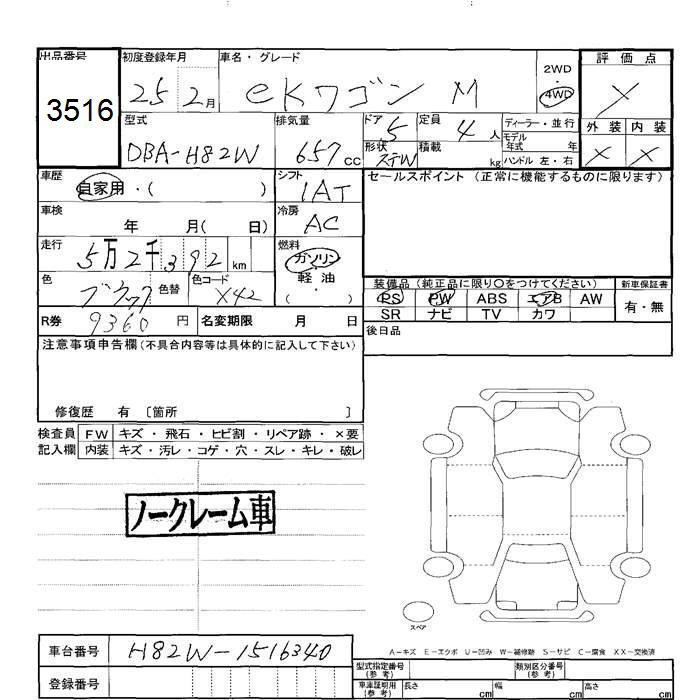 出品番号 初度登録年月 車名・グレード 2WD ・ 4WD 評価点
3516 25 2月 eKワゴン M X
型式 排気量 ドア 5 定員 4人 ディーラー・並行 外装 内装
DBA-H82W 657cc 形状 STW 積載 kg モデル年式 年 X X
ハンドル 左・右
車歴 自家用・( ) シフト IAT セールスポイント (正常に機能するものに限ります)
車検 年 月( 日) 冷房 AC
走行 5万2千392km 燃料 ガソリン
軽油
( ・ )
色 色替 色コード X42 装備品 (純正品に限り○をつけてください) 新車保証書
PS PW ABS エアB AW 有・無
R券 9360円 名変期限 月 日 SR ナビ TV カワ
後日品
注意事項申告欄 (不具合内容等は具体的に記入して下さい)
修復歴 有 〔箇所 〕
検査員 FW キズ・飛石・ヒビ割・リペア跡・×要
記入欄 内装 キズ・汚レ・コゲ・穴・スレ・キレ・破レ
ノークレーム車
スペア
A-キズ E-エクボ U-凹み W-補修跡 S-サビ C-腐食 XX-交換済
車台番号 H82W-1516340
型式指定番号 (参考) 類別区分番号 (参考)
登録番号 車庫証明用 (参考) 長さ cm 幅 cm 高さ cm